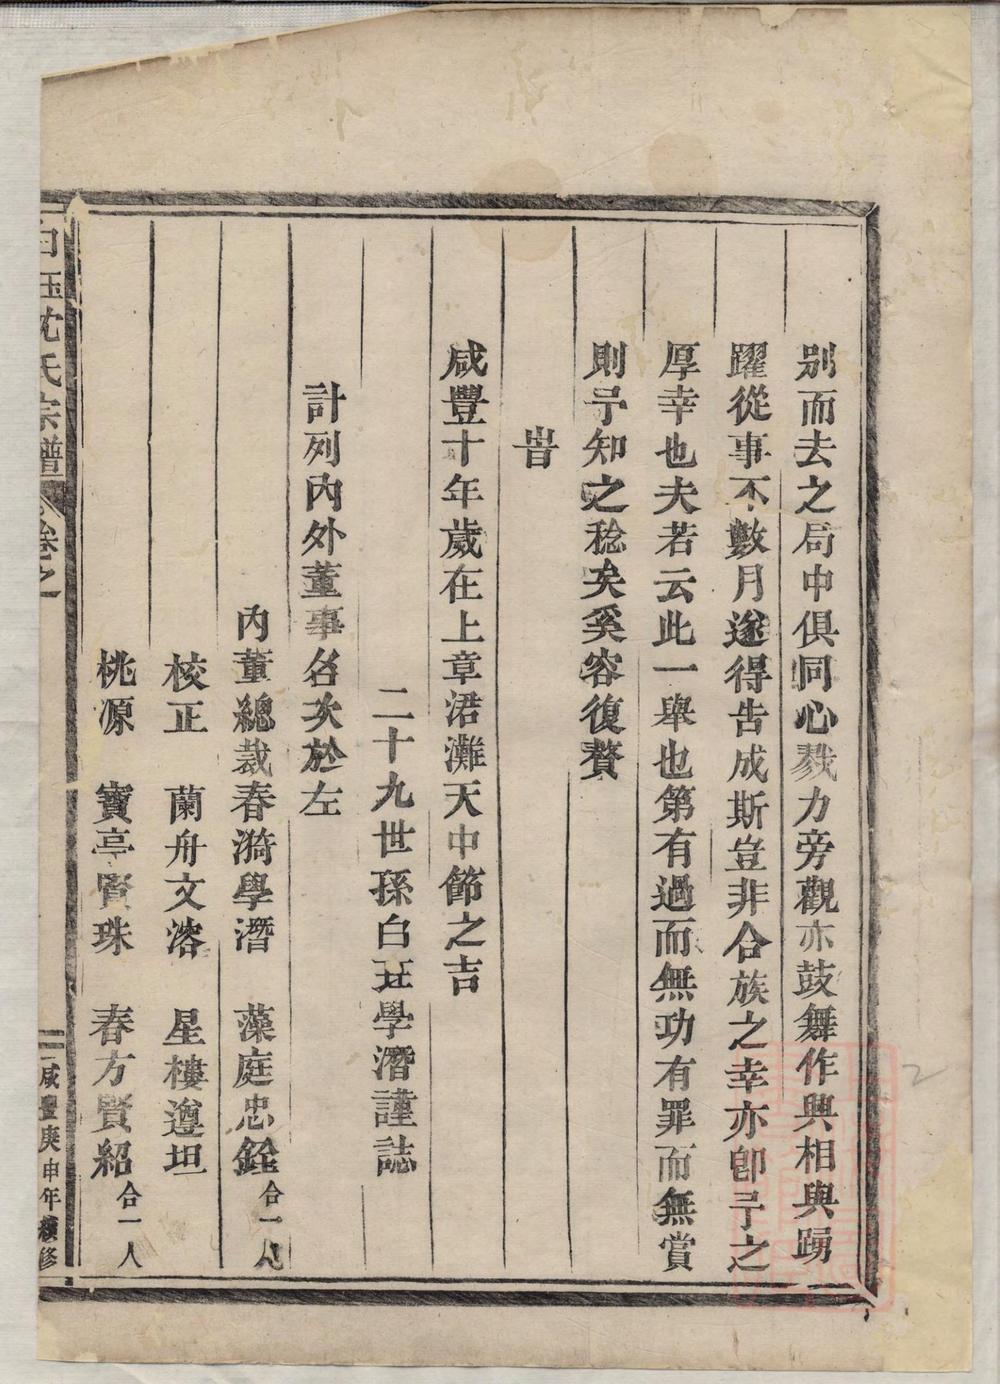 別而去之局中俱同心戮力旁觀亦鼓舞作興相與踴
躍從事不數月遂得告成斯豈非合族之幸亦卽予之
厚幸也夫若云此一舉也第有過而無功有罪而無賞
則予知之稔矣奚容復贅
旹
咸豐十年歲在上章涒灘天中節之吉
二十九世孫白珏學潛謹誌
計列內外董事名次於左
內董總裁春漪學潛 藻庭忠銓合一人
校正 蘭舟文溶 星樓遵坦
桃源 寶亭賢珠 春方賢紹合一人
白珏沈氏宗譜 卷之 咸豐庚申年續修